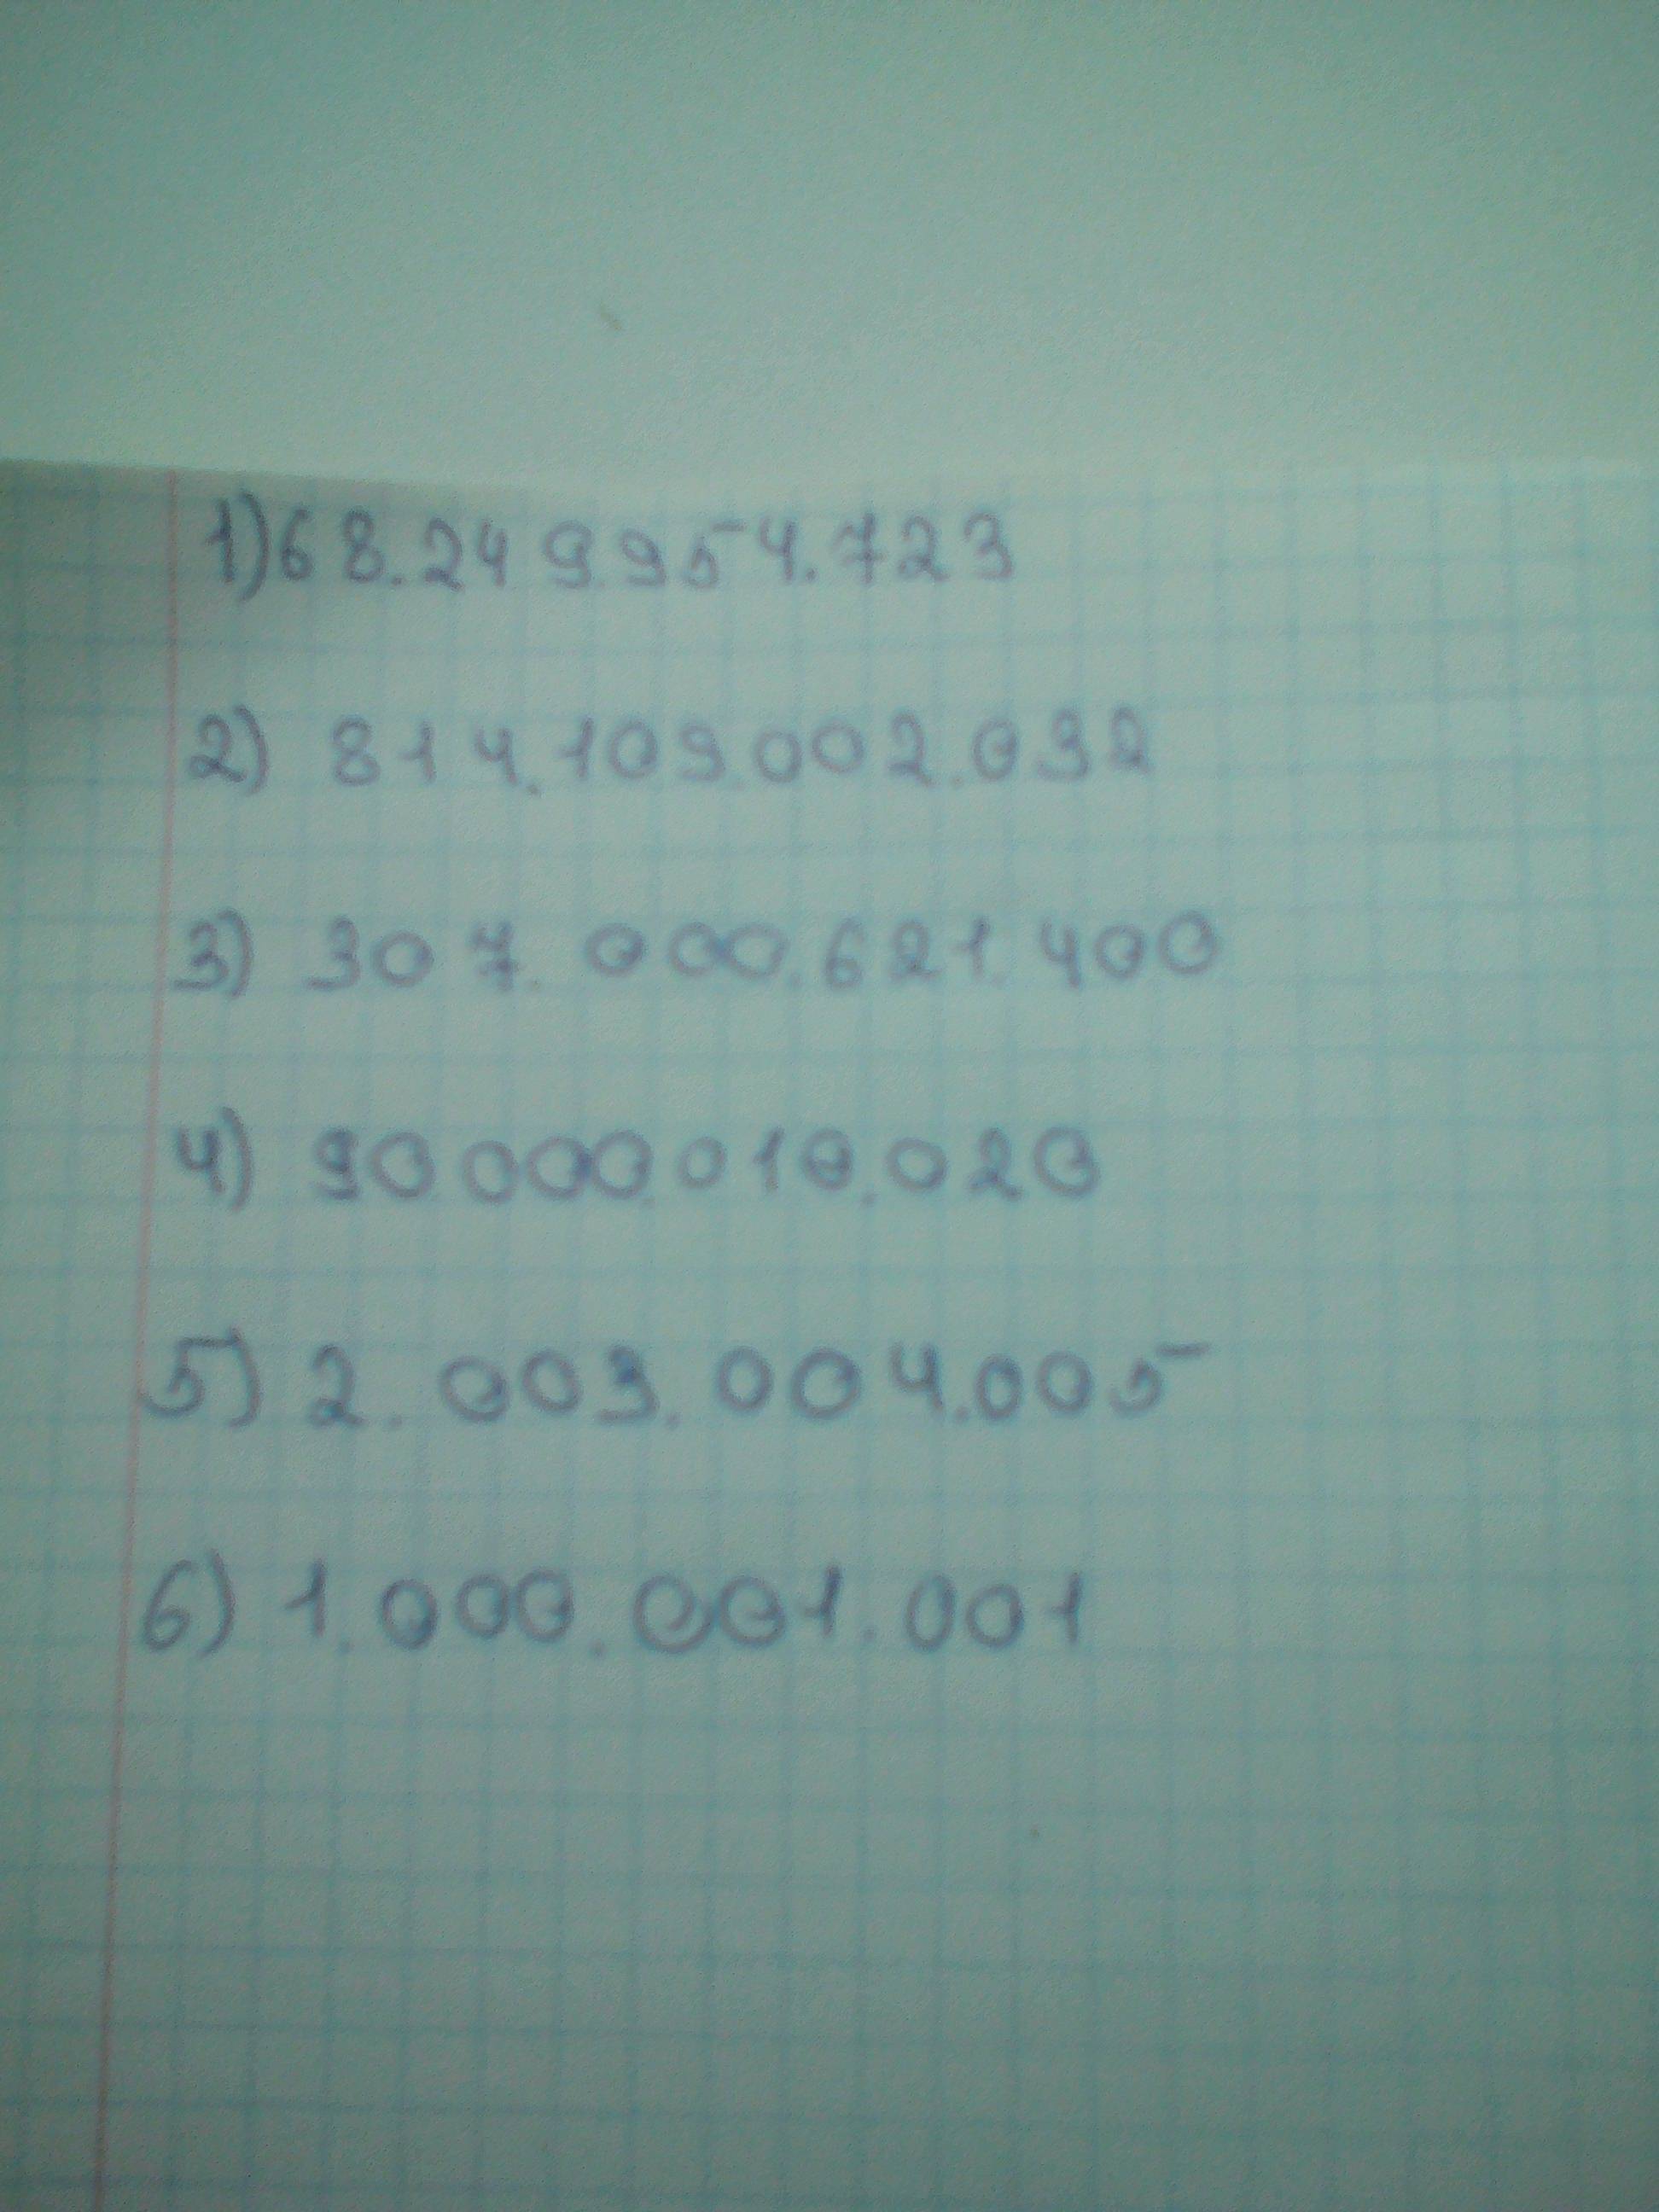 1) 68.249.954.723
2) 814.109.002.032
3) 307.000.621.400
4) 90.000.010.020
5) 2.003.004.005
6) 1.000.001.001